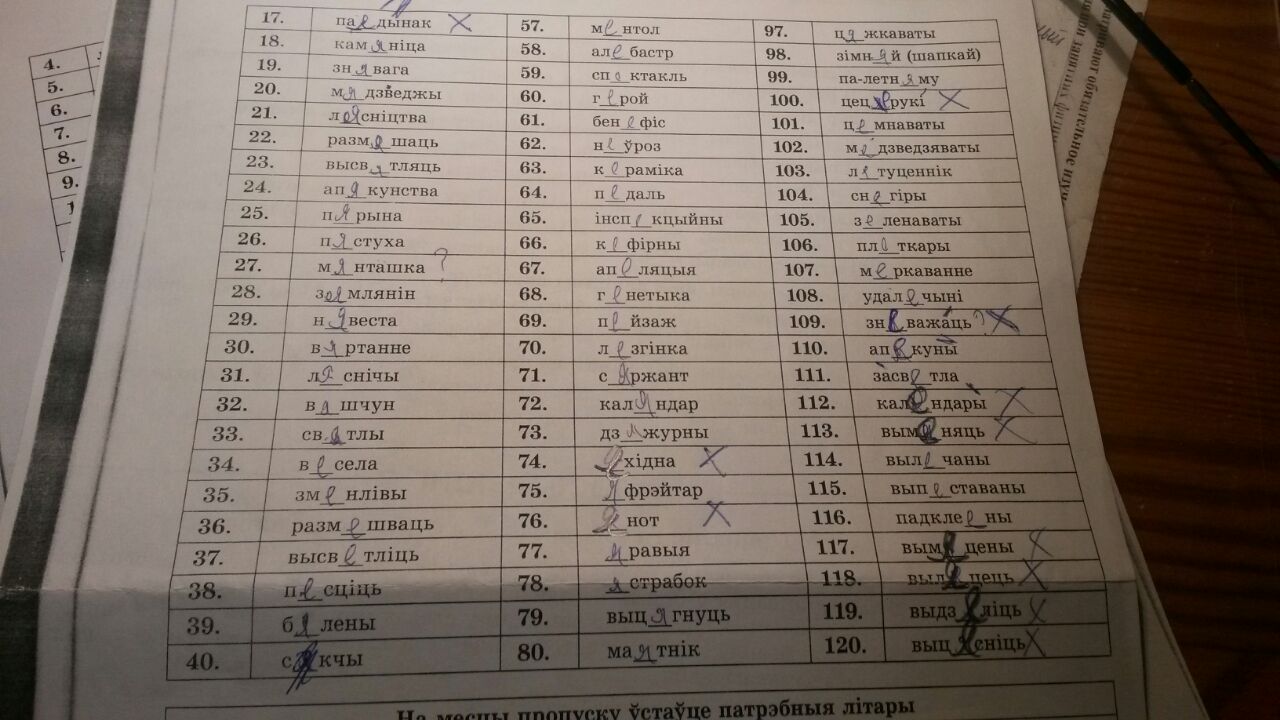 17. паядынак 57. ментол 97. цяжкаваты
18. камяніца 58. алебастр 98. зімняй (шапкай)
19. знявага 59. спектакль 99. па-летняму
20. мядзведжы 60. герой 100. цецерукі
21. лясніцтва 61. бенефіс 101. цемнаваты
22. размяшаць 62. неўроз 102. медзведзяваты
23. высвятляць 63. кераміка 103. летуценнік
24. апякунства 64. педаль 104. снегіры
25. пярына 65. інспекцыйны 105. зеленаваты
26. пястуха 66. кефірны 106. плеткары
27. мянташка ? 67. апеляцыя 107. меркаванне
28. земмлянін 68. генетыка 108. удалечыні
29. нявеста 69. пейзаж 109. зневажаць ?
30. вяртанне 70. лезгінка 110. апекуны
31. ляснічы 71. сяржант 111. засветла
32. вяшчун 72. каляндар 112. календары
33. святлы 73. дзяжурны 113. выменяць
34. весела 74. яхідна 114. вылечаны
35. зменлівы 75. яфрэйтар 115. выпеставаны
36. размешваць 76. янот 116. падклеены
37. высветліць 77. яравыя 117. вымецены
38. песціць 78. ястрабок 118. вылецець
39. бялены 79. выцягнуць 119. выдзеліць
40. сякчы 80. маятнік 120. выцесніць
На месцы пропуску ўстаўце патрэбныя літары
4.
5.
6.
7.
8.
9.